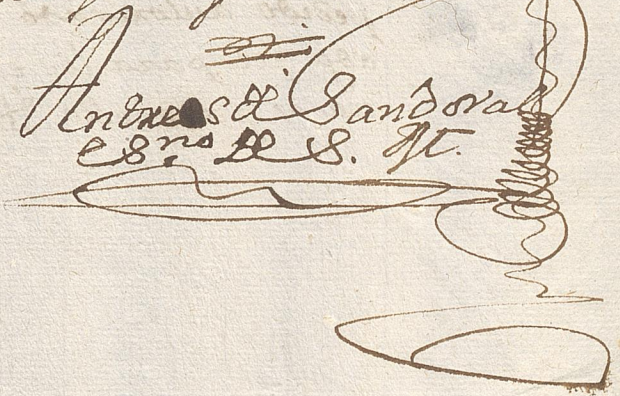 Andres de Sandoval
esno de S. M.